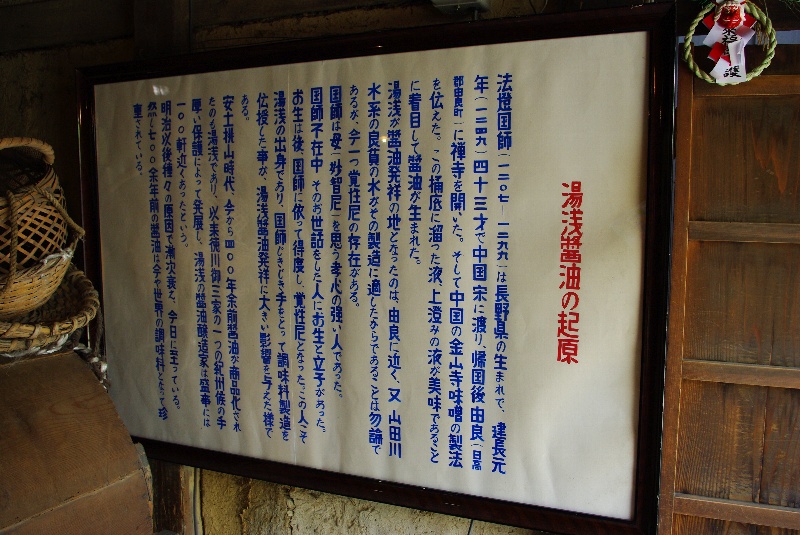 湯浅醤油の起原
法燈国師(一二〇七―一二九九)は長野県の生まれで、建長元
年(一二四九)四十三才で中国 宋に渡り、帰国後 由良(日高
郡由良町)に禅寺を開いた。そして中国の金山寺味噌の製法
を伝えた。この桶底に溜った液、上澄みの液が美味であること
に着目して醤油が生まれた。
湯浅が醤油発祥の地となったのは、由良に近く、又 山田川
水系の良質の水がその製造に適したからであることは勿論で
あるが、今一つ覚性尼の存在がある。
国師は母「妙智尼」を思う孝心の強い人であった。
国師不在中 そのお世話をした人にお生と立子があった。
お生は後、国師に依って得度し、覚性尼となった。この人こそ
湯浅の出身であり、国師じきじき手をとって調味料製造を
伝授した事が、湯浅醤油発祥に大きい影響を与えた様で
ある。
安土桃山時代、今から四〇〇年余前醤油が商品化され
たのも湯浅であり、以来徳川御三家の一つの紀州候の手
厚い保護によって発展し、湯浅の醤油醸造家は盛事には
一〇〇軒近くあったという。
明治以後種々の原因で漸次衰え、今日に至っている。
然し七〇〇余年前の醤油は今や世界の調味料となって珍
重されている。